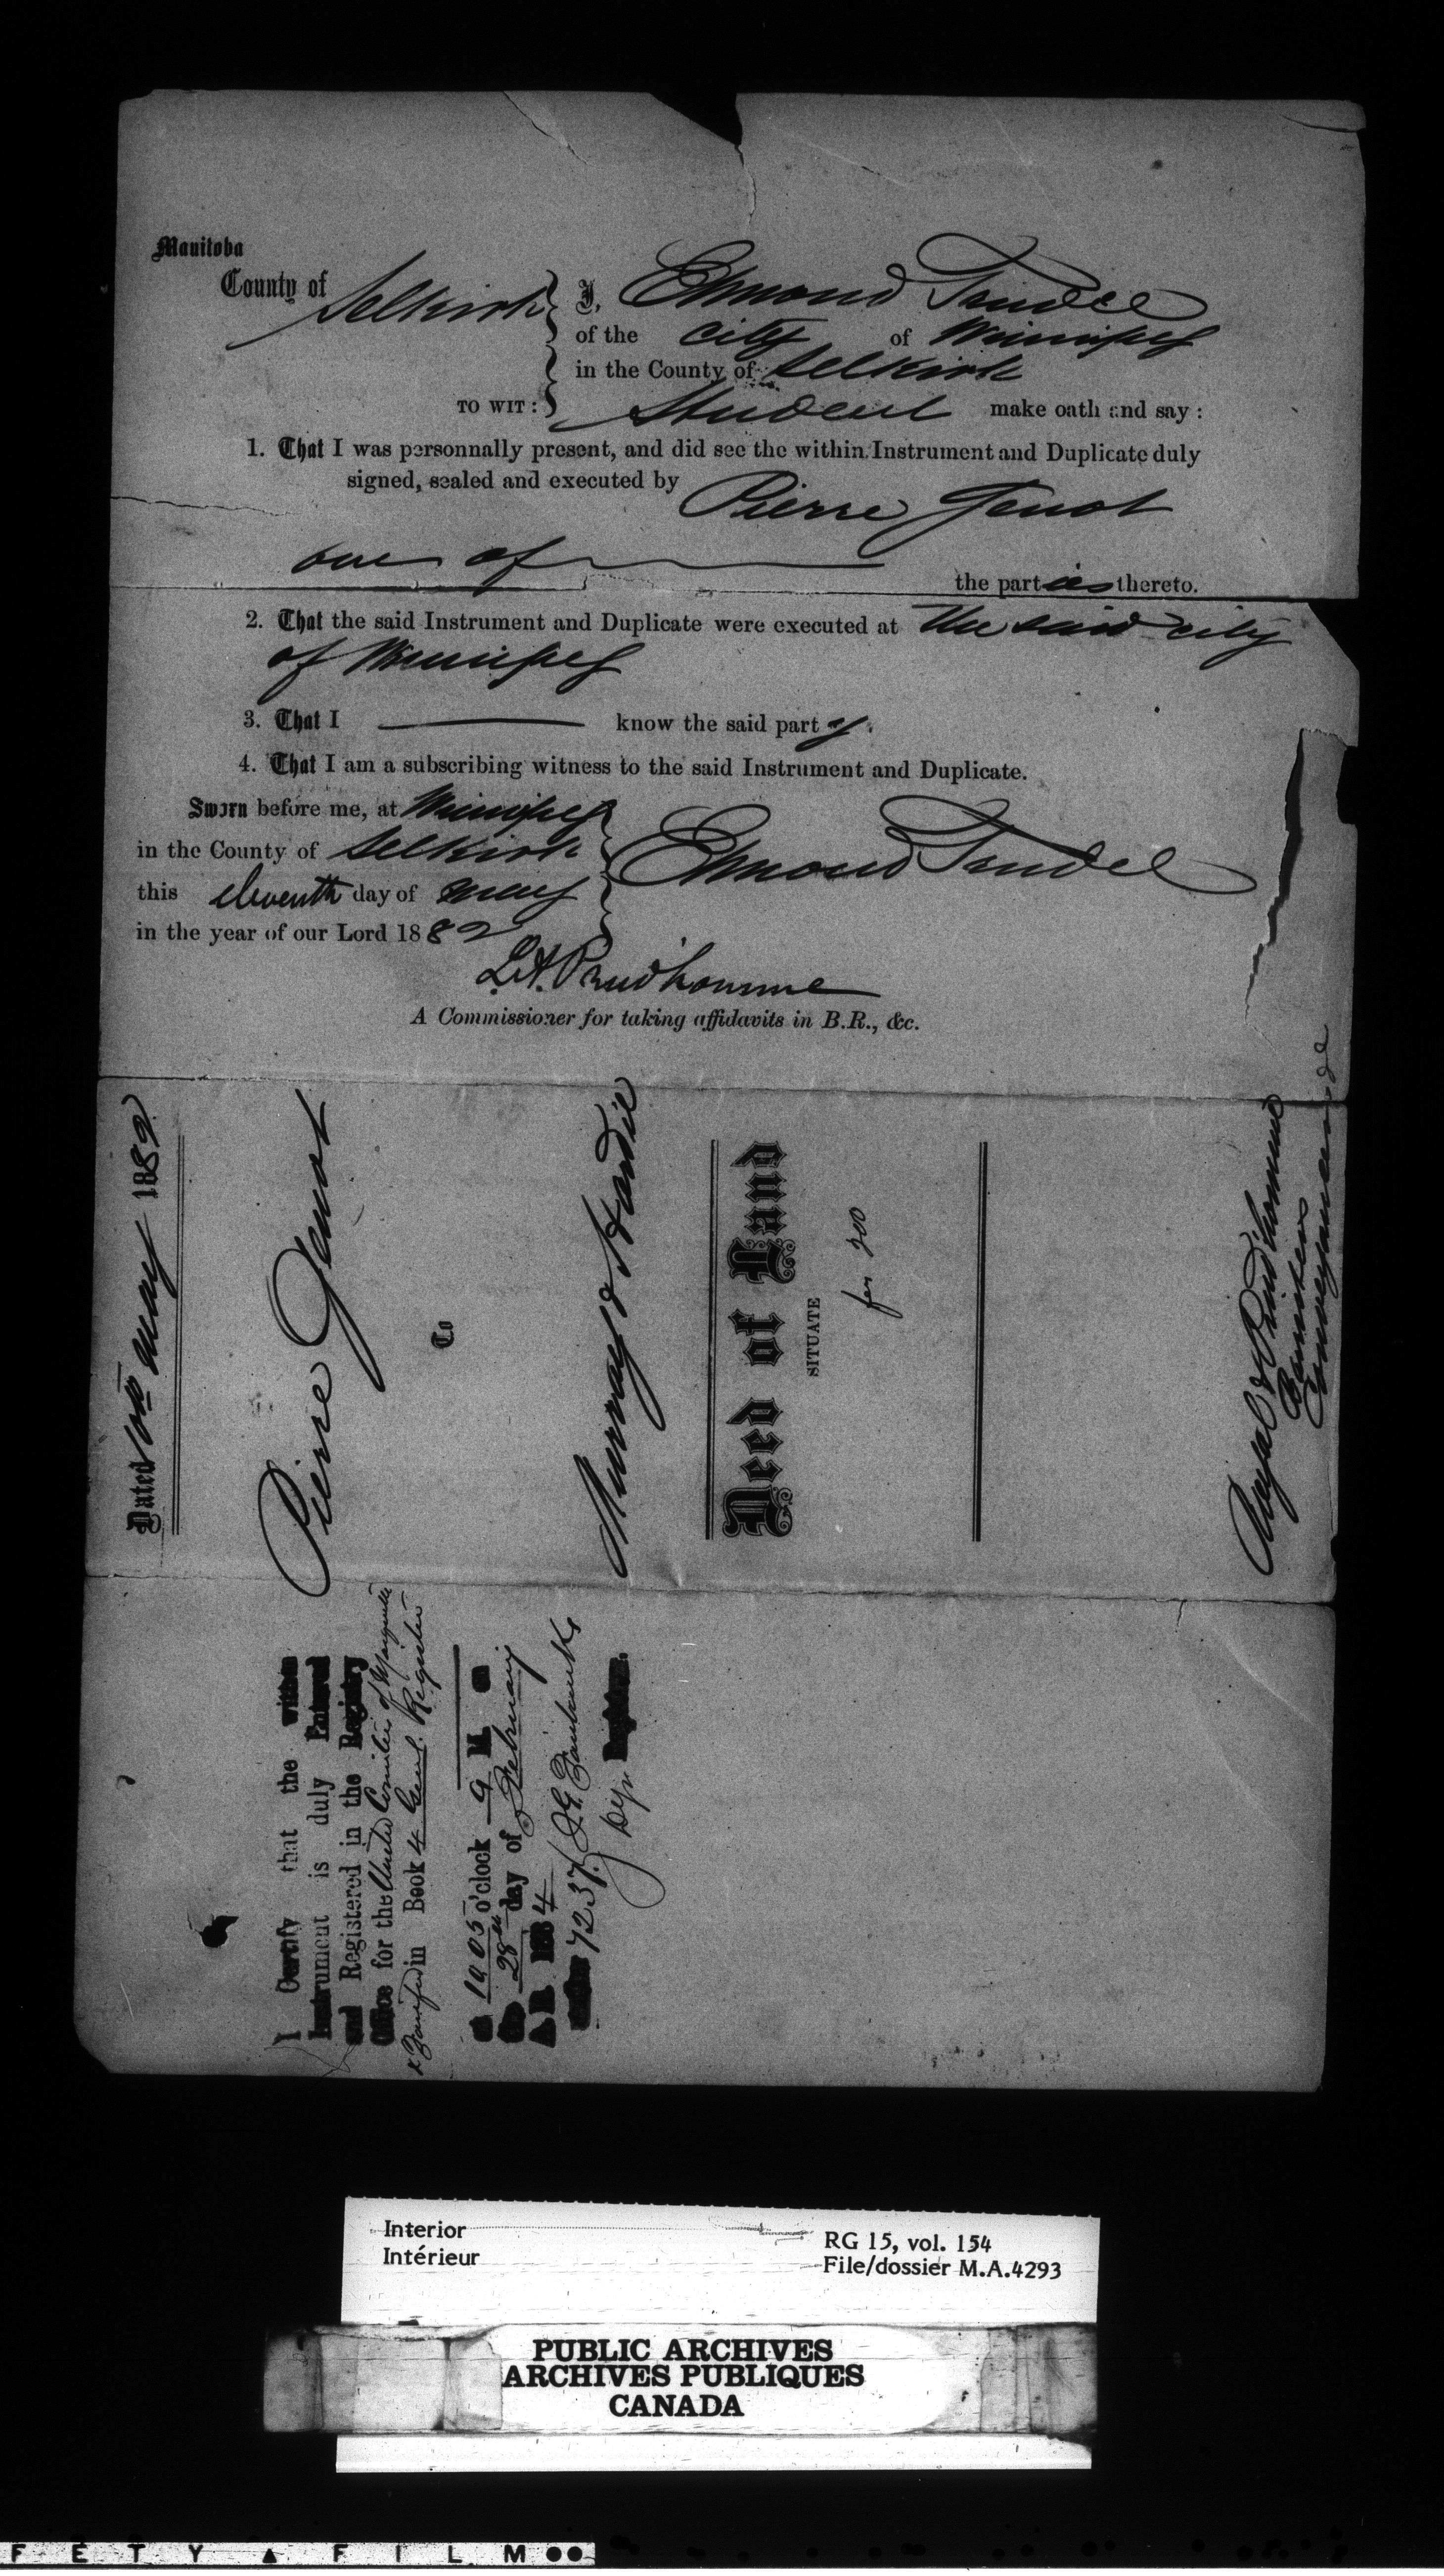 Manitoba
County of Selkirk
I, Edmond Trudel
of the city of Winnipeg
in the County of Selkirk
TO WIT: Student make oath and say:
1. That I was personnally present, and did see the within Instrument and Duplicate duly
signed, sealed and executed by Pierre Genot
one of the parties thereto.
2. That the said Instrument and Duplicate were executed at the said city
of Winnipeg
3. That I know the said party.
4. That I am a subscribing witness to the said Instrument and Duplicate.
Sworn before me, at Winnipeg
in the County of Selkirk
this eleventh day of may
in the year of our Lord 1882
Edmond Trudel
L.A. Prudhomme
A Commissioner for taking affidavits in B.R., &c.
Dated 10th May 1882
Pierre Genot
To
Murray & Hardie
Deed of Land
SITUATE
for 200
& Prudhomme
Barristers
I Certify that the within
Instrument is duly Entered
and Registered in the Registry
Office for the United Counties of Marquette
in Book 4 Genl. Register
at 10 05 o'clock a M on
the 28th day of February
A D 1884
number 7237 J.G.
Dy. Registrar.
Interior
Intérieur
RG 15, vol. 154
File/dossier M.A.4293
PUBLIC ARCHIVES
ARCHIVES PUBLIQUES
CANADA
F E T Y ▲ F I L M ●●